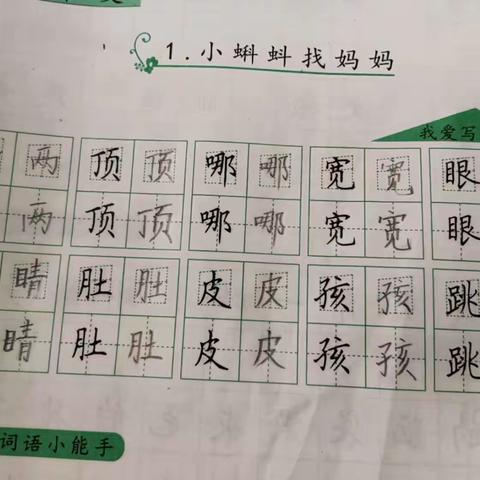 1.小蝌蚪找妈妈
我爱写
两 顶 顶 哪 哪 宽 宽 眼
两 顶 顶 哪 哪 宽 宽 眼
睛 肚 肚 皮 皮 孩 孩 跳
睛 肚 肚 皮 皮 孩 孩 跳
词语小能手